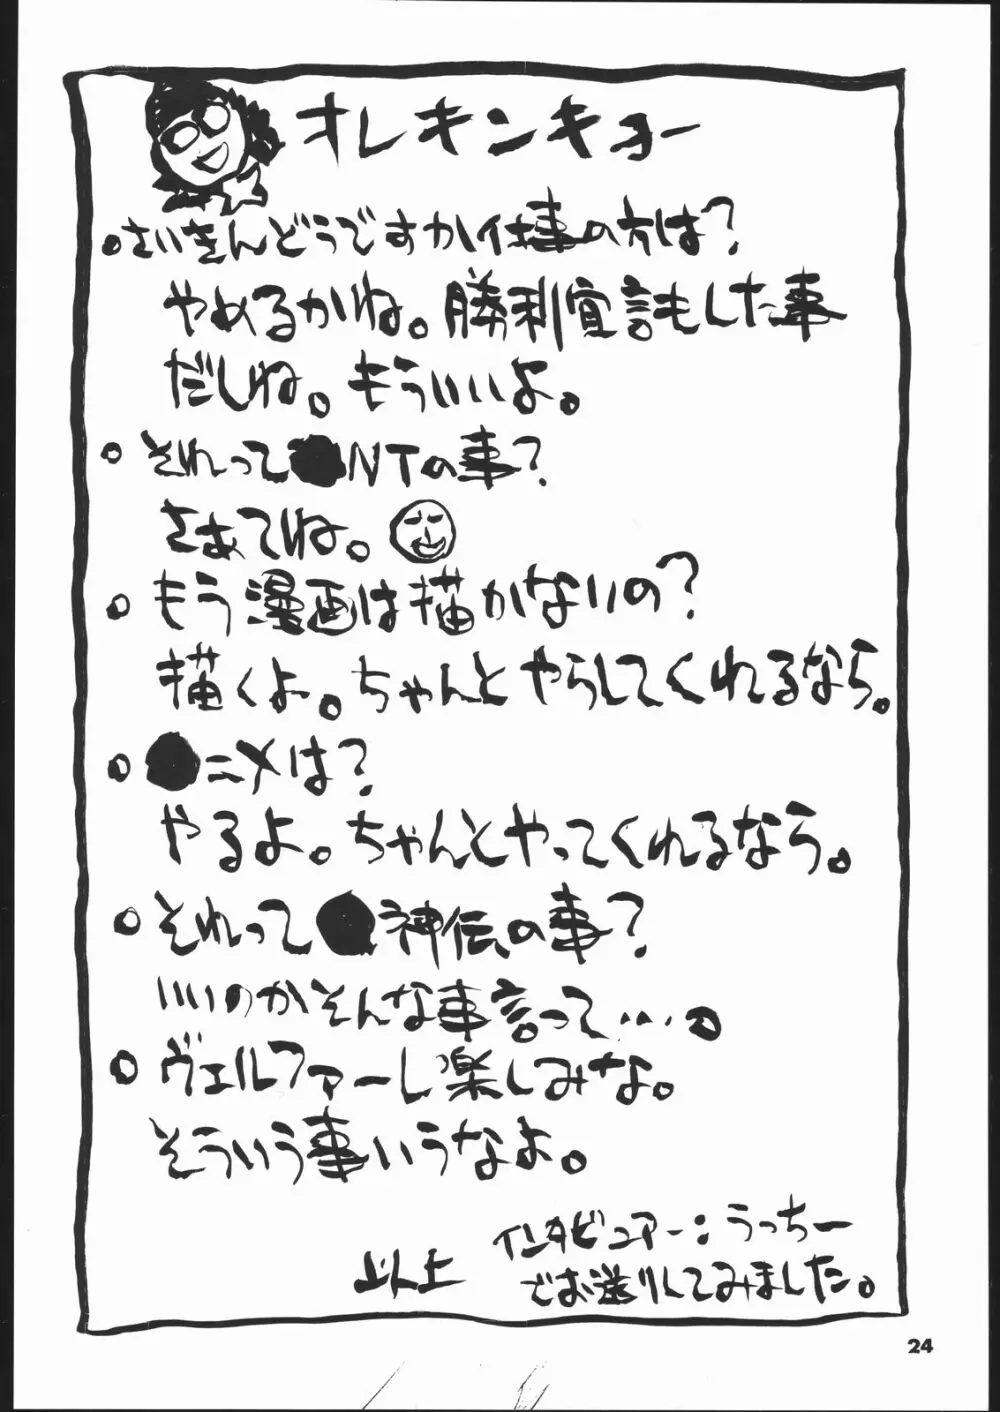 オレキンキョー
。さいきんどうですか仕事の方は？
やめるかね。勝利宣言もした事
だしね。もういいよ。
。それって●NTの事？
さあてね。
。もう漫画は描かないの？
描くよ。ちゃんとやらしてくれるなら。
。●ニメは？
やるよ。ちゃんとやってくれるなら。
。それって●神伝の事？
いいのかそんな事言って…。
。ヴェルファーレ楽しみな。
そういう事いうなよ。
インタビュアー：うっちー
以上 でお送りしてみました。
24